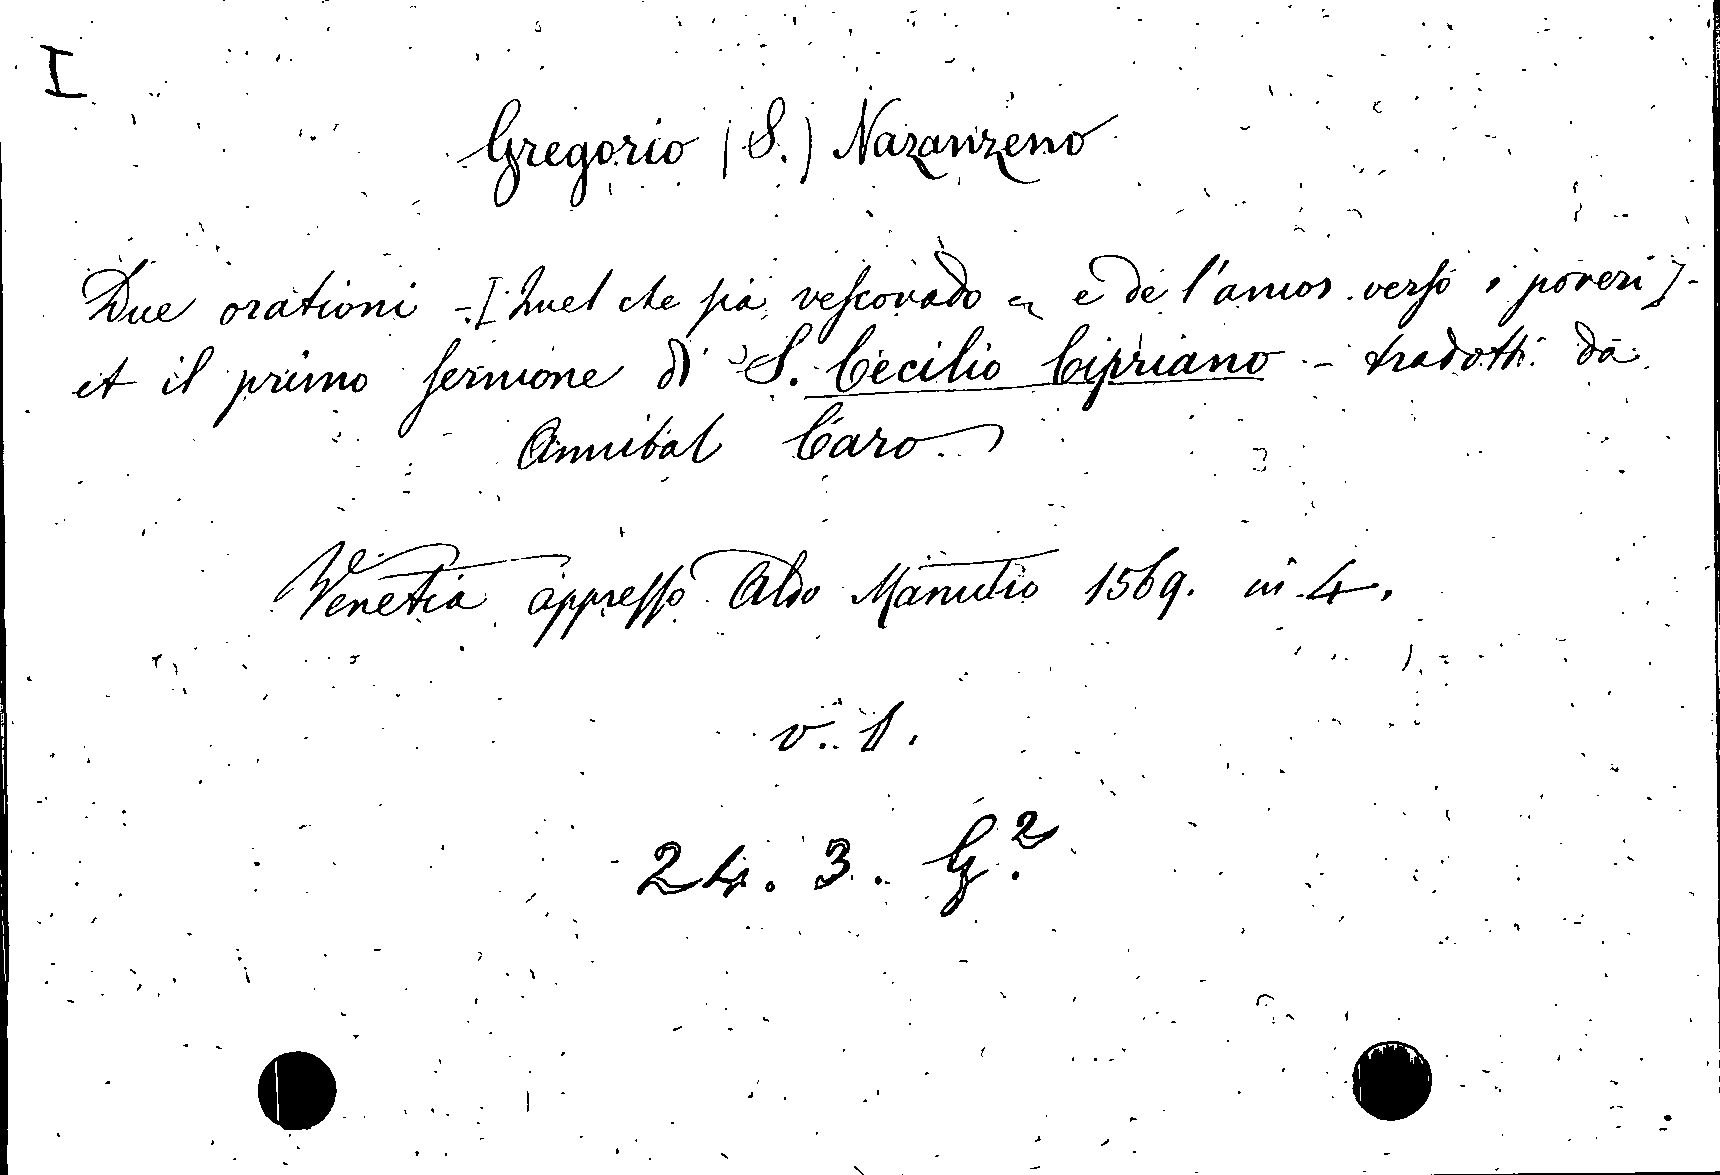 I
Gregorio (S.) Nazanzeno
Due orationi - [Quel che sia vescovado e de l'amor verso i poveri] -
et il primo sermone di S. Cecilio Cipriano - tradotti da
Annibal Caro
Venetia appresso Aldo Manutio 1569. in 4.
v. 1.
24. 3. G².